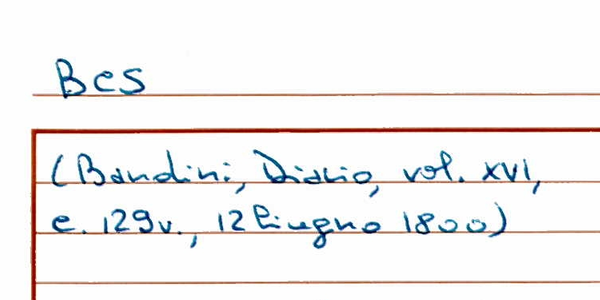 BCS
(Bandini, Diario, vol. XVI,
c. 129v., 12 Giugno 1800)